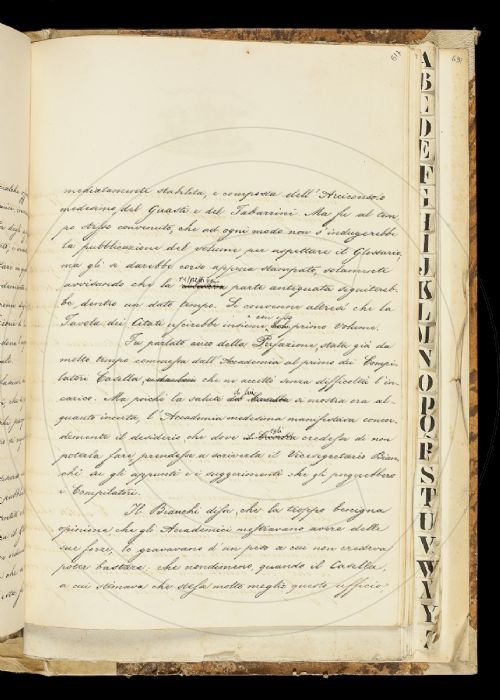 617
mediatamente stabilita, e composta dell'Arciconsolo
medesimo, del Guasti e del Tabarrini. Ma fu al tem
po stesso convenuto, che ad ogni modo non s'indugerebbe
la pubblicazione del volume per aspettare il Glossario,
ma gli si darebbe corso appena stampato, solamente
avvisando che la respettiva parte antiquata seguitereb-
be dentro un dato tempo. Si convenne altresì che la
Tavola dei Citati uscirebbe insieme con esso primo Volume.
Fu parlato anco della Prefazione, stata già da
molto tempo commessa dall'Accademia al primo dei Compi-
latori Casella, che ne accettò senza difficoltà l'in-
carico. Ma poichè la salute di lui si mostra ora al-
quanto incerta, l'Accademia medesima manifestava concor-
demente il desiderio che dove egli credesse di non
poterla fare prendesse a scriverla il Vicesegretario Bian-
chi su gli appunti e i suggerimenti che gli porgerebbero
i Compilatori.
Il Bianchi disse, che la troppo benigna
opinione che gli Accademici mostravano avere delle
sue forze, lo gravavano d'un peso a cui non credeva
poter bastare: che nondimeno, quando il Casella,
a cui stimava che stesse molto meglio questo ufficio,
A
B
C
D
E
F
G
H
I
J
K
L
M
N
O
P
Q
R
S
T
U
V
W
X
Y
Z